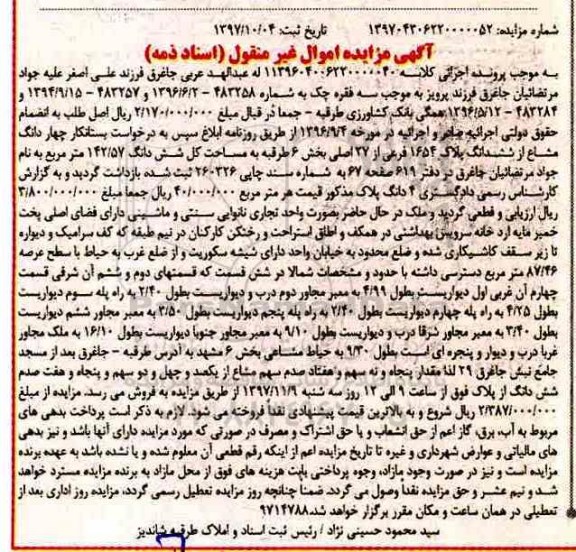 شماره مزایده: ۱۳۹۷۰۴۳۰۶۲۲۰۰۰۰۰۵۲ تاریخ ثبت: ۱۳۹۷/۱۰/۰۴
آگهی مزایده اموال غیر منقول (اسناد ذمه)
به موجب پرونده اجرائی کلاسه ۱۱۳۹۶۰۴۰۰۶۲۲۰۰۰۰۰۴۰ له عبدالهد عربی جاغرق فرزند علی اصغر علیه جواد
مرتضائیان جاغرق فرزند پرویز به موجب سه فقره چک به شماره ۴۸۳۲۵۸ - ۱۳۹۶/۶/۲ و ۴۸۳۲۵۷ - ۱۳۹۴/۹/۱۵ و
۴۸۳۲۸۴ - ۱۳۹۶/۵/۱۲ همگی بانک کشاورزی طرقبه - جمعا در قبال مبلغ ۲/۱۷۰/۰۰۰/۰۰۰ ریال اصل طلب به انضمام
حقوق دولتی اجرائیه صادر و اجرائیه در مورخه ۱۳۹۶/۹/۴ از طریق روزنامه ابلاغ سپس به درخواست بستانکار چهار دانگ
مشاع از ششدانگ پلاک ۱۶۵۴ فرعی از ۲۷ اصلی بخش ۶ طرقبه به مساحت کل شش دانگ ۱۴۲/۵۷ متر مربع به نام
جواد مرتضائیان جاغرق در دفتر ۶۱۹ صفحه ۶۷ به شماره سند چاپی ۲۶۰۳۲۶ ثبت شده بازداشت گردید و به گزارش
کارشناس رسمی دادگستری ۴ دانگ پلاک مذکور قیمت هر متر مربع ۴۰/۰۰۰/۰۰۰ ریال جمعا مبلغ ۳/۸۰۰/۰۰۰/۰۰۰
ریال ارزیابی و قطعی گردید و ملک در حال حاضر بصورت واحد تجاری نانوایی سنتی و ماشینی دارای فضای اصلی پخت
خمیر مایه ارد خانه سرویس بهداشتی در همکف و اطاق استراحت و رختکن کارکنان در نیم طبقه که کف سرامیک و دیواره
تا زیر سقف کاشیکاری شده و ضلع محدود به خیابان واحد دارای شیشه سکوریت و از ضلع غرب به حیاط با سطح عرصه
۸۷/۴۶ متر مربع دسترسی داشته با حدود و مشخصات شمالا در شش قسمت که قسمتهای دوم و ششم آن شرقی قسمت
چهارم آن غربی اول دیواریست بطول ۴/۹۹ به معبر مجاور دوم درب و دیواریست بطول ۲/۴۰ به راه پله سوم دیواریست
بطول ۴/۲۵ به راه پله چهارم دیواریست بطول ۲/۴۰ به راه پله پنجم دیواریست بطول ۳/۵۰ به معبر مجاور ششم دیواریست
بطول ۳/۴۰ به معبر مجاور شرقا درب و دیواریست بطول ۹/۱۰ به معبر مجاور جنوبا دیواریست بطول ۱۶/۱۰ به ملک مجاور
غربا درب و دیوار و پنجره ای است بطول ۹/۳۰ به حیاط مشاعی بخش ۶ مشهد به آدرس طرقبه - جاغرق بعد از مسجد
جامع نبش جاغرق ۲۹ لذا مقدار پنجاه و نه سهم و هفتاد صدم سهم مشاع از یکصد و چهل و دو سهم و پنجاه و هفت صدم
شش دانگ از پلاک فوق از ساعت ۹ الی ۱۲ روز سه شنبه ۱۳۹۷/۱۱/۹ از طریق مزایده به فروش می رسد. مزایده از مبلغ
۲/۳۸۷/۰۰۰/۰۰۰ ریال شروع و به بالاترین قیمت پیشنهادی نقدا فروخته می شود. لازم به ذکر است پرداخت بدهی های
مربوط به آب، برق، گاز اعم از حق انشعاب و یا حق اشتراک و مصرف در صورتی که مورد مزایده دارای آنها باشد و نیز بدهی
های مالیاتی و عوارض شهرداری و غیره تا تاریخ مزایده اعم از اینکه رقم قطعی آن معلوم شده و یا نشده باشد به عهده برنده
مزایده است و نیز در صورت وجود مازاد، وجوه پرداختی بابت هزینه های فوق از محل مازاد به برنده مزایده مسترد خواهد
شد و نیم عشر و حق مزایده نقدا وصول می گردد. ضمنا چنانچه روز مزایده تعطیل رسمی گردد، مزایده روز اداری بعد از
تعطیلی در همان ساعت و مکان مقرر برگزار خواهد شد. ۹۷۱۴۷۸۸
سید محمود حسینی نژاد / رئیس ثبت اسناد و املاک طرقبه شاندیز